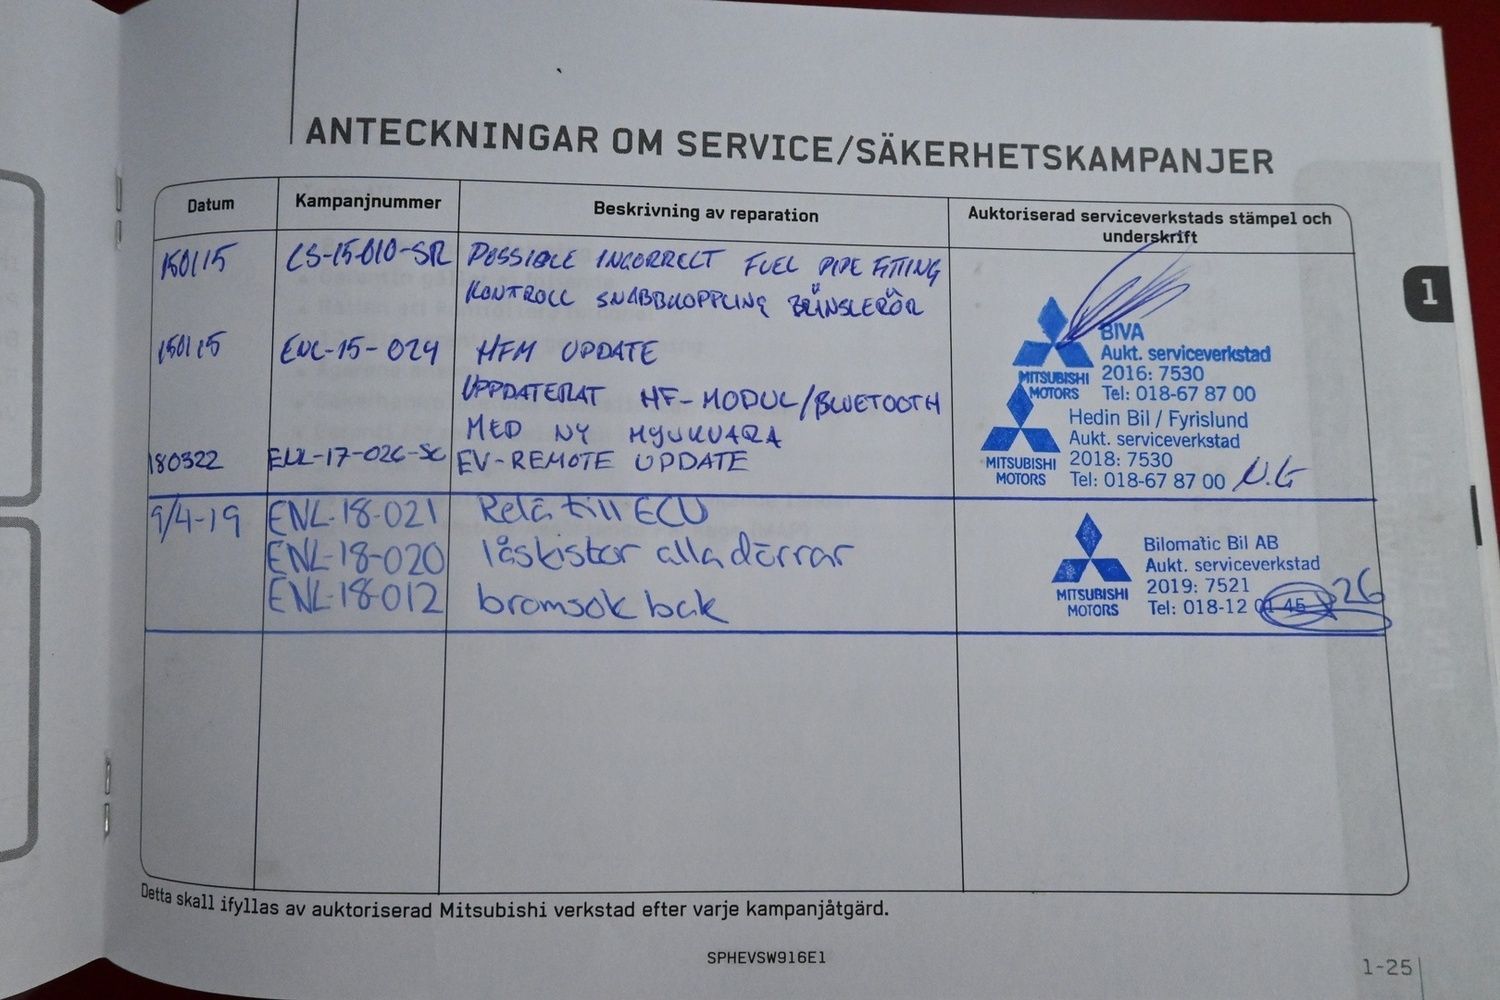 ANTECKNINGAR OM SERVICE/SÄKERHETSKAMPANJER
Datum Kampanjnummer Beskrivning av reparation Auktoriserad serviceverkstads stämpel och underskrift
150115 CS-15-010-SR POSSIBLE INCORRECT FUEL PIPE FITTING
KONTROLL SNABBKOPPLING BRÄNSLERÖR
150115 ENL-15-024 HFM UPDATE
UPPDATERAT HF-MODUL/BLUETOOTH
MED NY MJUKVARA
BIVA
Aukt. serviceverkstad
2016: 7530
Tel: 018-67 87 00
MITSUBISHI
MOTORS
180322 EV-REMOTE UPDATE
Hedin Bil / Fyrislund
Aukt. serviceverkstad
2018: 7530
Tel: 018-67 87 00
MITSUBISHI
MOTORS
9/4-19 ENL-18-021 Relä till ECU
ENL-18-020 låskistor alla dörrar
ENL-18-012 bromsok bak
Bilomatic Bil AB
Aukt. serviceverkstad
2019: 7521
Tel: 018-12 01 45 26
MITSUBISHI
MOTORS
Detta skall ifyllas av auktoriserad Mitsubishi verkstad efter varje kampanjåtgärd.
SPHEVSW916E1
1-25
1